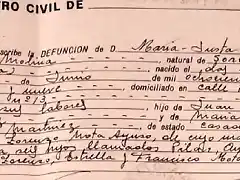 TRO CIVIL DE
scribe la DEFUNCION de D María Justa
Molina natural de
Junio nacido el dos
de mil ochocien
y nueve, domiciliado en calle
sus labores, hijo de Juan
y de María
Martínez de estado casad
Lorenzo Mota Ayuso, de cuyo
seis hijos llamados Pilar,
Lorenzo, Estrella y Francisco Mota